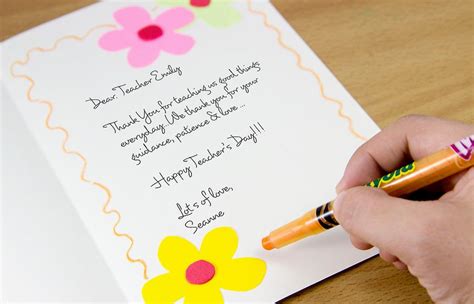 Dear, Teacher Emily
Thank You for teaching us good things
everyday. We thank you for your
guidance, patience & love ...
Happy Teacher's Day!!!
Lots of love,
Seanne